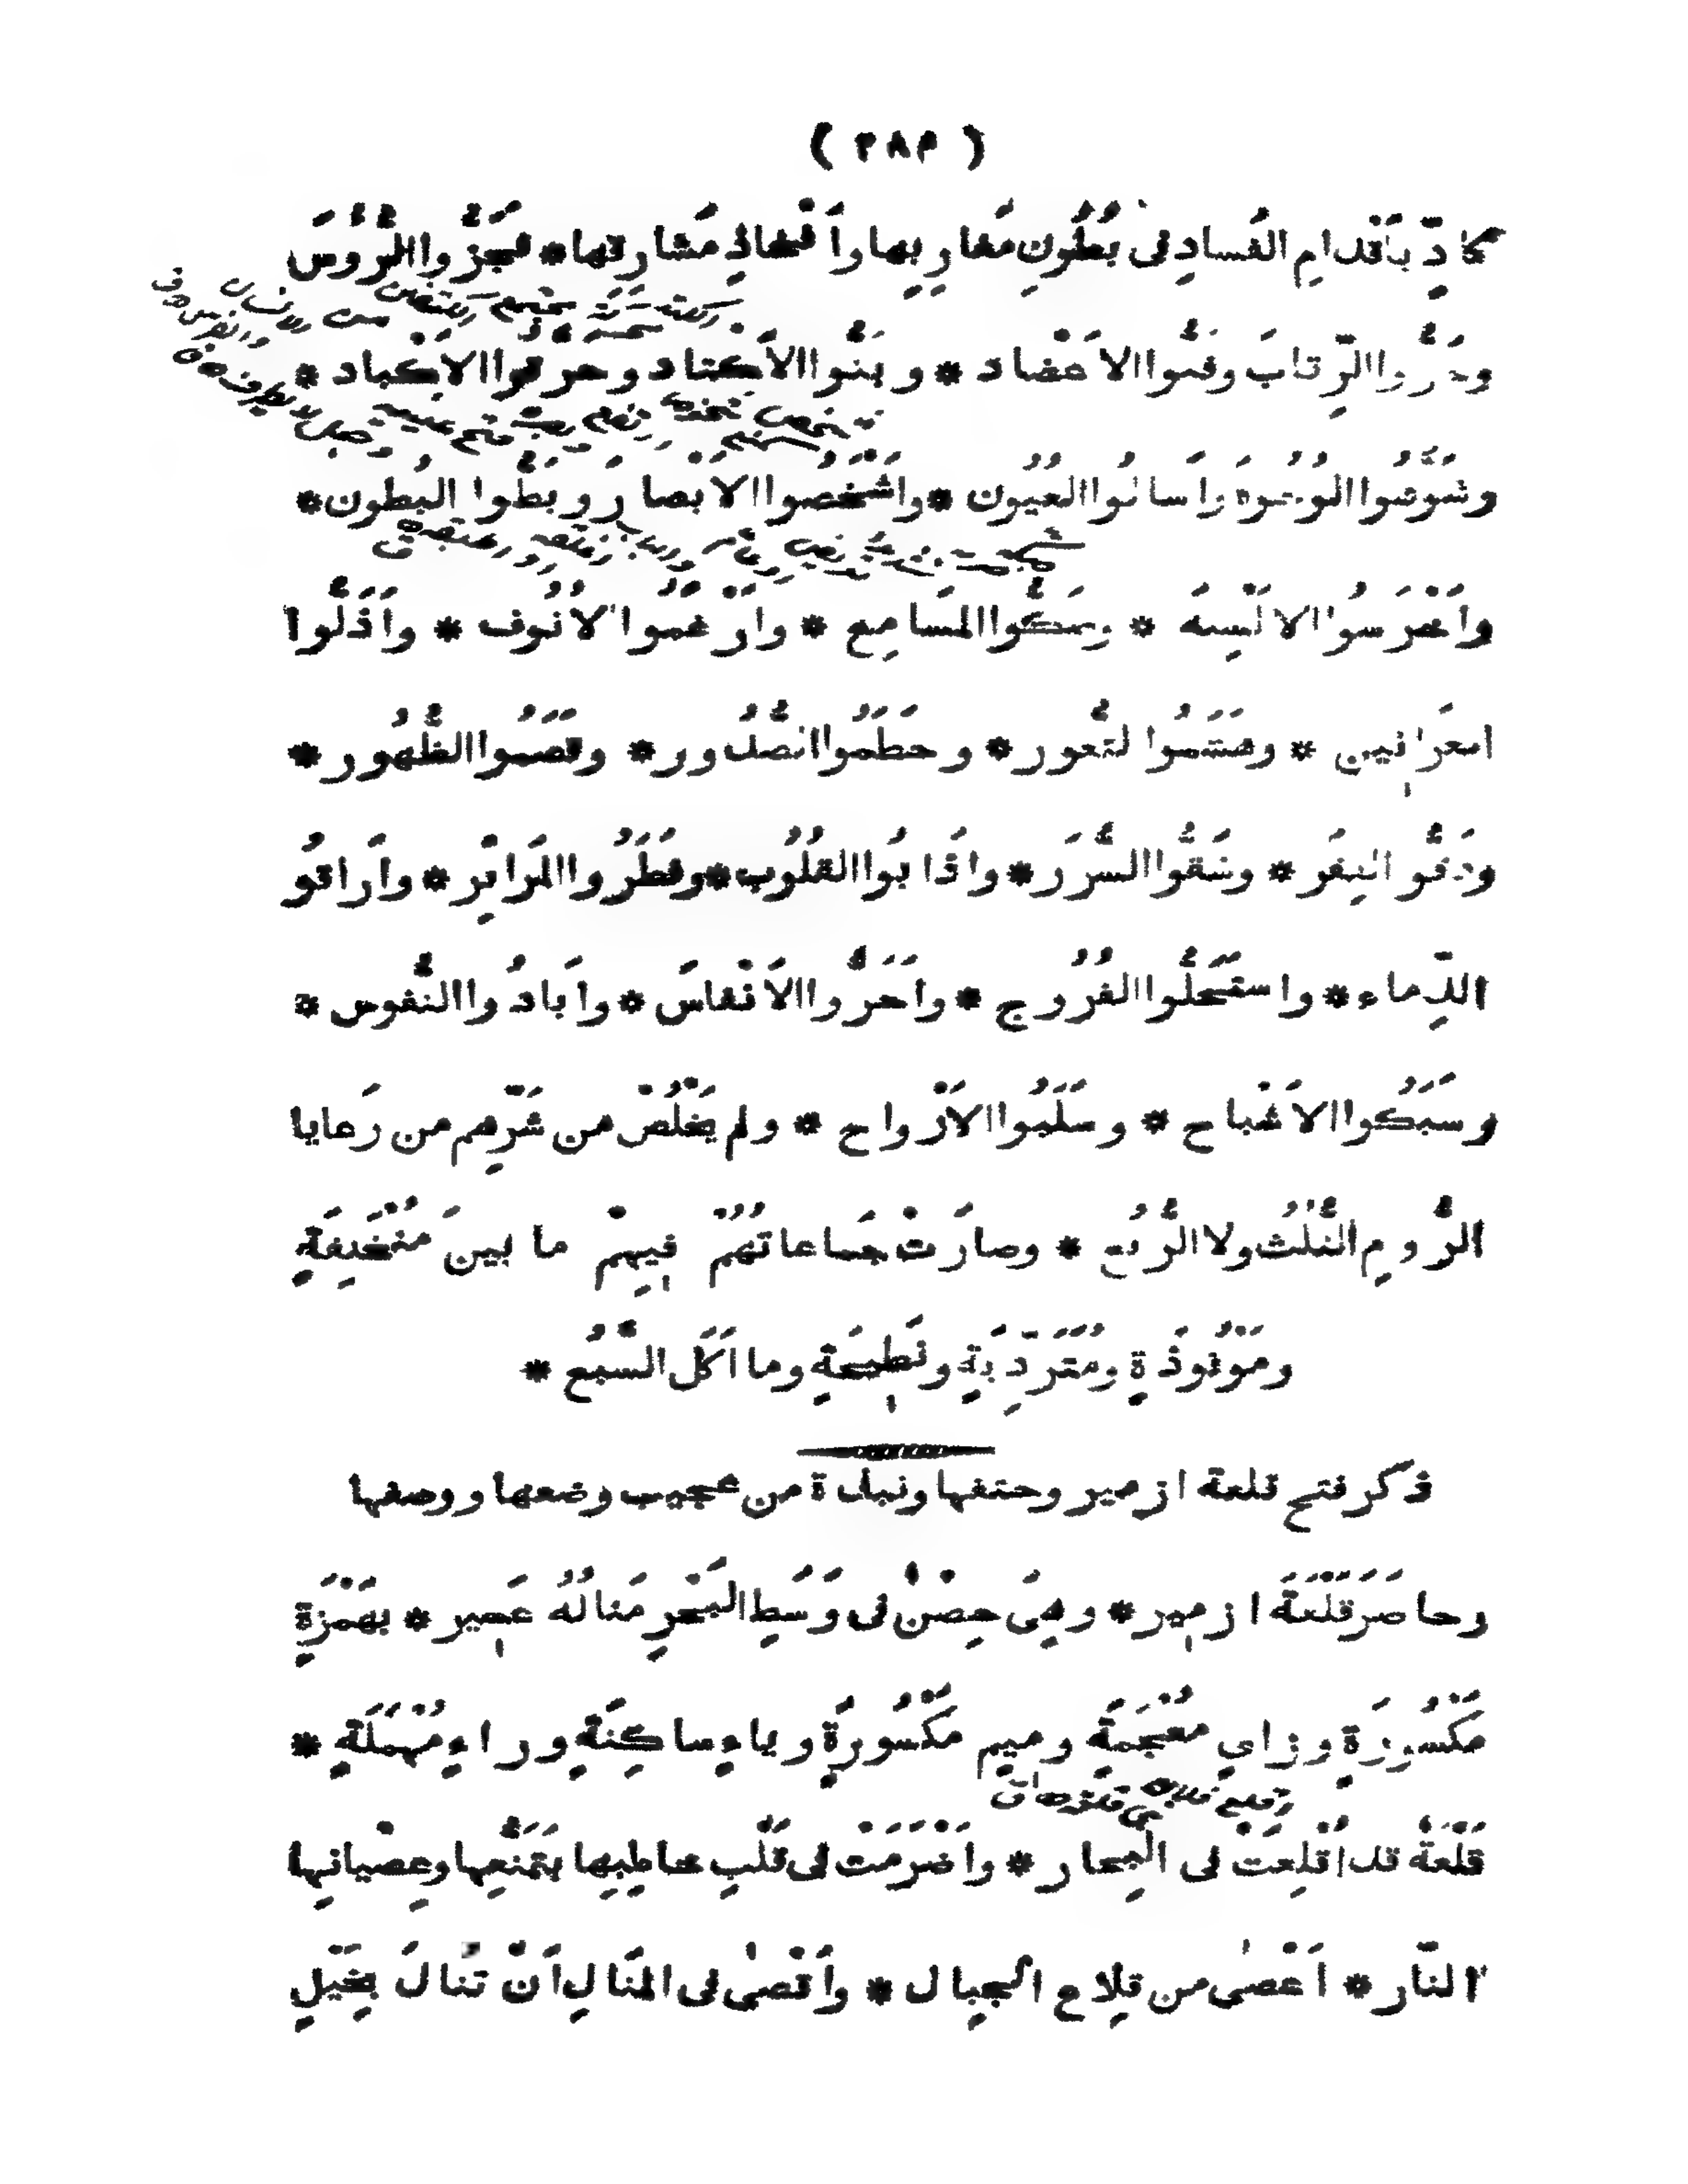 ( ٢٨٢ )
كادّ بأَقدامِ الفَسادِ فى بُطُونِ مَغارِبِها وأَفْخاذِ مَشارِقِها * فَجَزُّوا الرُّؤُسَ
وحَزُّوا الرِّقابَ وفَتُّوا الاَعْضاد * وبَتُّوا الاَكْتاد وحَرَّقُوا الاَكْباد *
وشَوَّهُوا الوُجُوهَ وأَسالُوا العُيُون * واَشْخَصُوا الاَبْصارَ وبَطُّوا البُطون *
واَخْرَسُوا الاَلْسِنَة * وسَكُّوا المَسامِع * واَرْغَمُوا الاُنُوف * واَذَلُّوا
العَرانِين * وهَشَمُوا الثُّغور * وحَطَمُوا الصُّدُور * وقَصَمُوا الظُّهُور *
ودَقُّوا الفِقَر * وشَقُّوا السُّرَر * واَذابُوا القُلُوب * وفَطَّرُوا المَرائِر * واَراقُو
الدِّماء * واستَحَلُّوا الفُرُوج * واَحَرُّوا الاَنْفاسَ * واَبادُوا النُّفُوس *
وسَبَكُوا الاَشْباح * وسَلَبُوا الاَرْواح * ولم يَخْلُصْ من شَرِّهم من رَعايا
الرُّومِ الثُّلُثُ ولا الرُّبُع * وصارَتْ جَماعاتُهُمْ فِيهِمْ ما بينَ مُنْخَنِقَةٍ
ومَوْقُوذَةٍ ومُتَرَدِّيَةٍ ونَطِيحَةٍ وما اَكَلَ السَّبُع *
ذكر فتح قلعة ازمير وحتفها ونبذة من عجيب وضعها ووصفها
وحاصَرَ قَلْعَةَ ازمير * وهِىَ حِصْنٌ فى وَسَطِ البَحْرِ مَنالُهُ عَسِير * بهَمْزَةٍ
مَكْسُورَةٍ وزاىٍ مُعْجَمَةٍ وميم مَكْسُورَةٍ وياءٍ ساكِنَةٍ وراءٍ مُهْمَلَةٍ *
قَلْعَةٌ قد اُقْلِعَتْ فى البِحار * واَضْرَمَتْ فى قَلْبِ خاطِبِها بتَمَنُّعِها وعِصْيانِها
النّار * اَعْصٰى من قِلاعِ الجِبال * واَقْصٰى فى المَنالِ اَنْ تُنالَ بخَيْلٍ